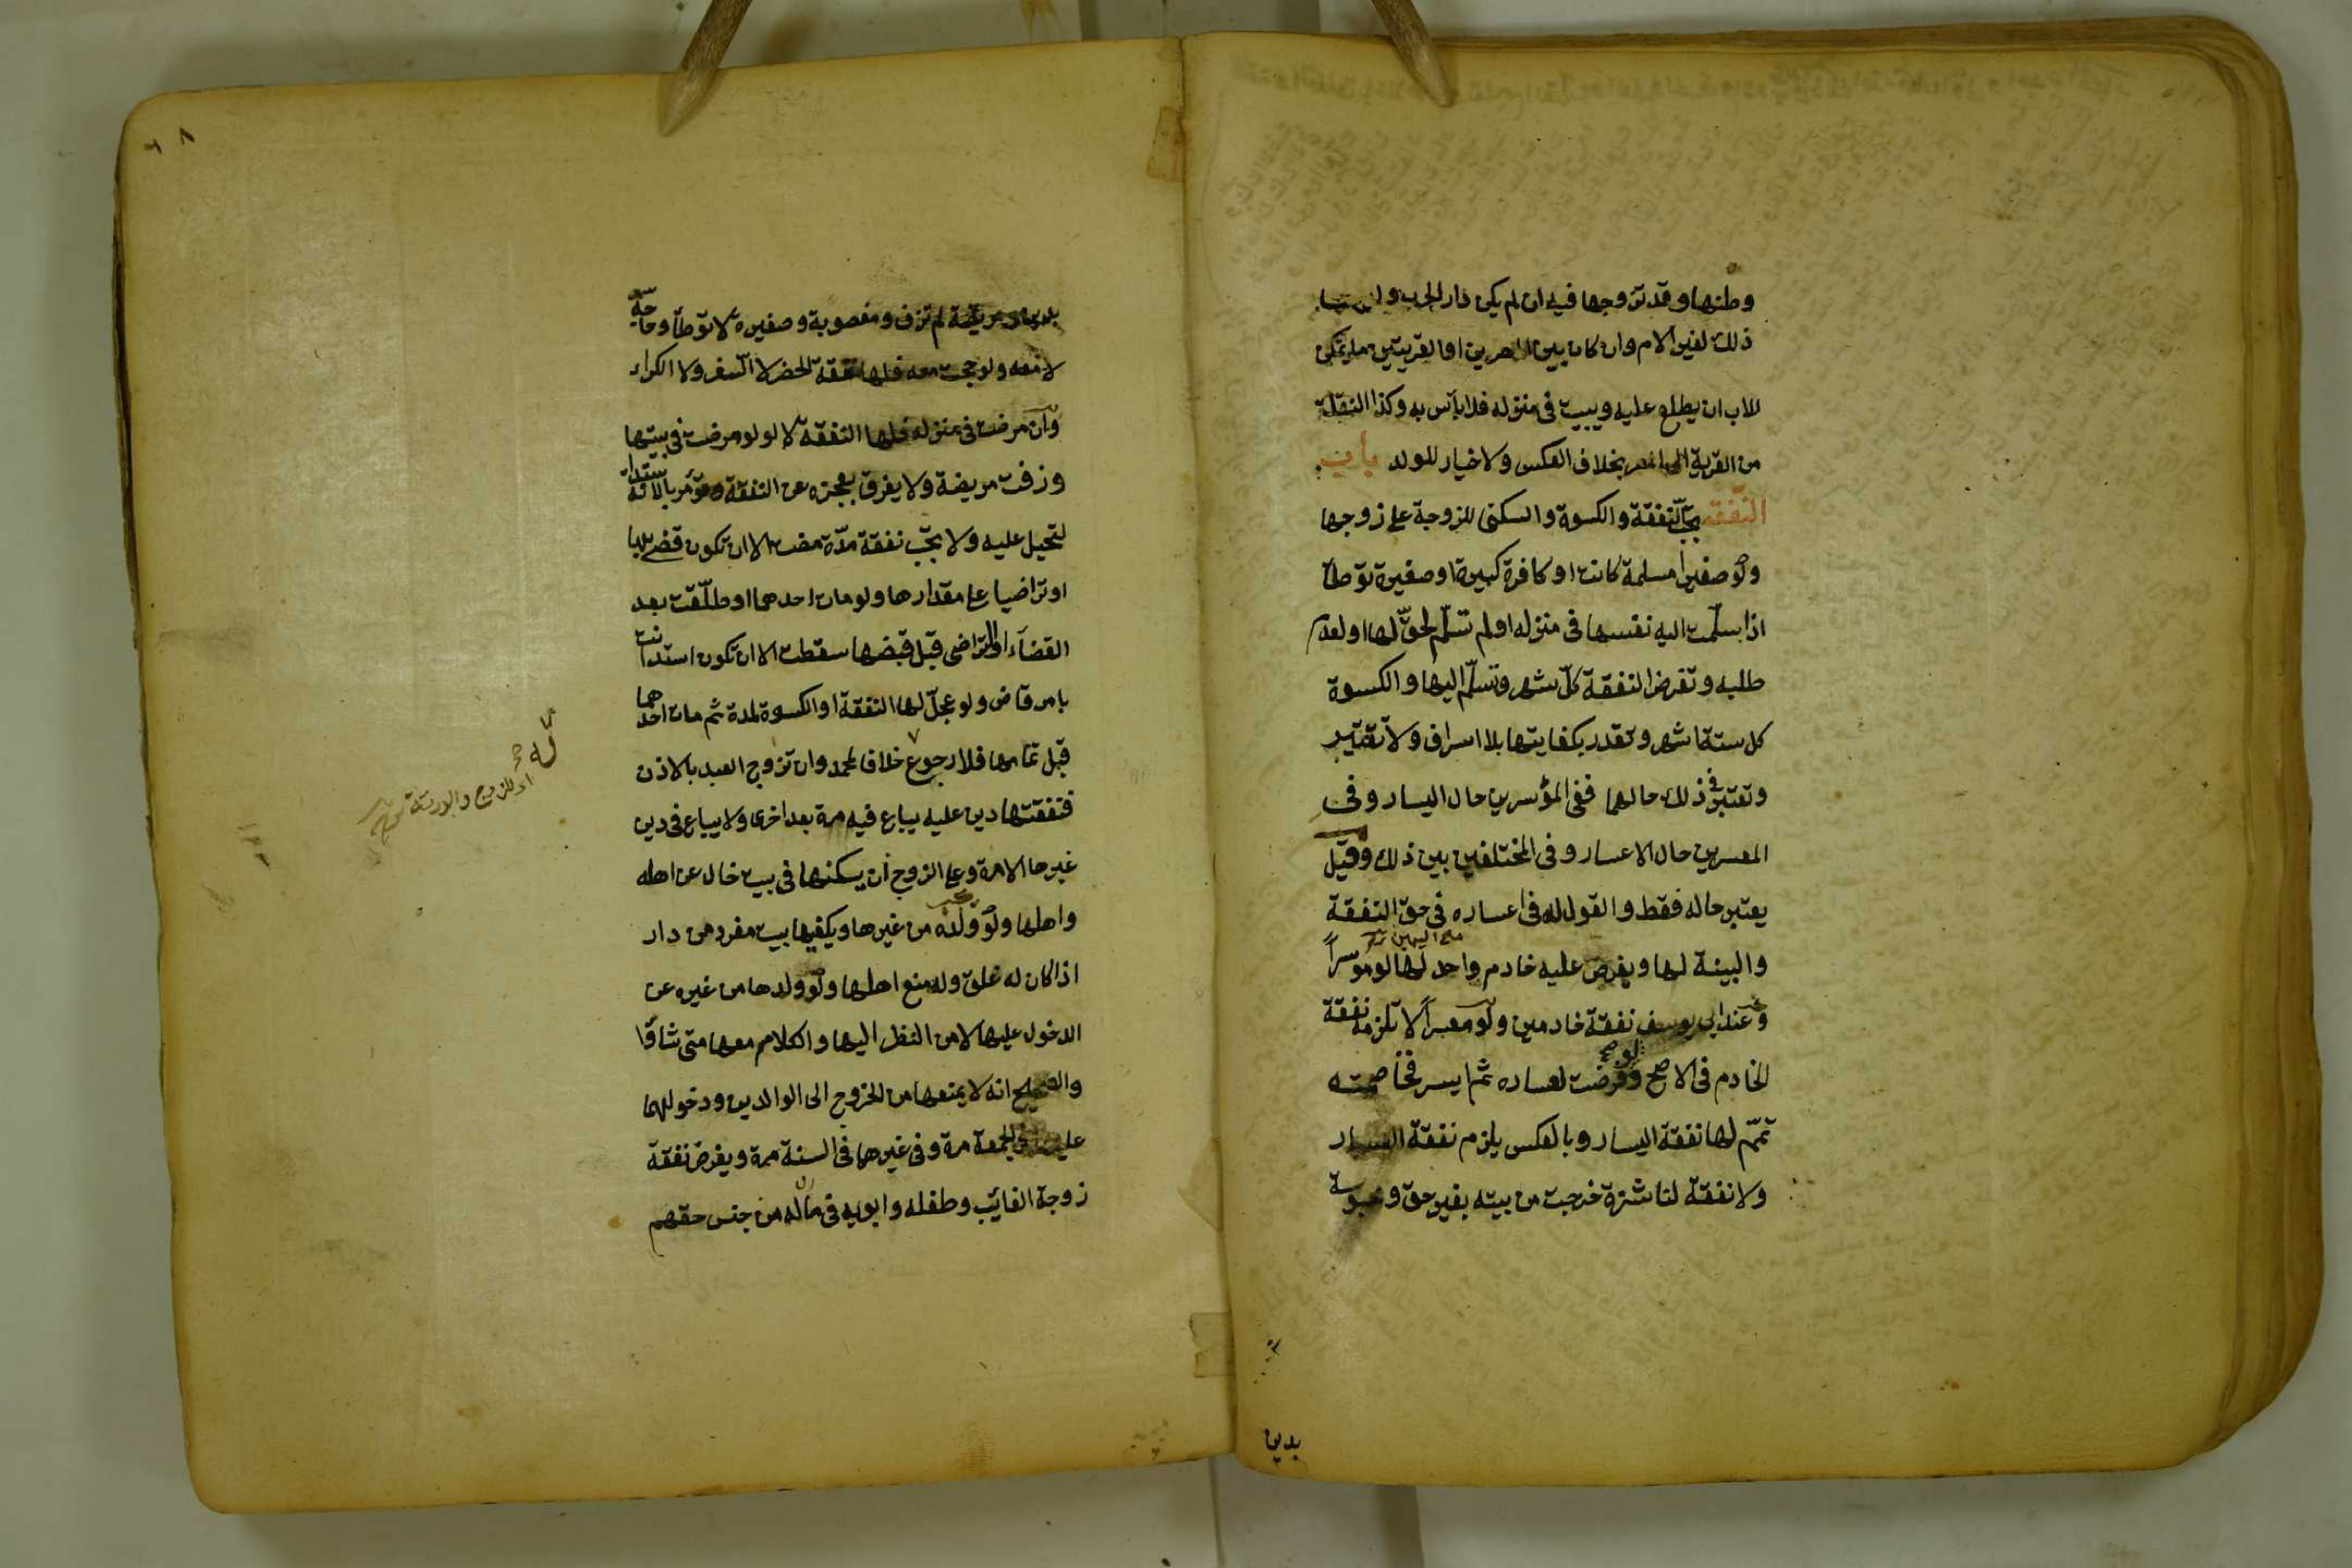 وطنها وقد تزوجها فيه ان لم يكن دار الحرب وليس
ذلك لغير الام وان كان بين المصرين او القريتين ما يمكن
للاب ان يطلع عليه ويبيت فى منزله فلا بأس به وكذا النقلة
من القرية الى المصر بخلاف العكس ولا خيار للولد باب
النفقة تجب النفقة والكسوة والسكنى للزوجة على زوجها
ولو صغيرا مسلمة كانت او كافرة كبيرة او صغيرة توطأ
اذا سلّمت اليه نفسها فى منزله او لم تسلّم لحقّ لها او لعدم
طلبه وتفرض النفقة كلّ شهر وتسلّم اليها والكسوة
كل ستة اشهر وتقدر بكفايتها بلا اسراف ولا تقتير
وتعتبر فى ذلك حالهما ففى المؤسرين حال اليسار وفى
المعسرين حال الاعسار وفى المختلفين بين ذلك وقيل
يعتبر حاله فقط والقول له فى اعساره فى حق النفقة
مع اليمين
والبينة لها ويفرض عليه خادم واحد لها لو موسراً
وعند ابى يوسف نفقة خادمين ولو معسراً لا تلزمه نفقة
الخادم فى الاصح ولو فرضت لعساره ثم ايسر فخاصمته
تمّم لها نفقة اليسار وبالعكس يلزم نفقة
ولا نفقة لناشزة خرجت من بيته بغير حق ومحبوسة
بدين
٦٨
بدين ومريضة لم تزف ومغصوبة وصغيرة لا توطأ وحاجّة
لا معه ولو حجت معه فلها نفقة الحضر لا السفر ولا الكراء
وان مرضت فى منزله فلها النفقة لا لو مرضت فى بيتها
وزفت مريضة ولا يفرق بعجزه عن النفقة وتؤمر بالاستدانة
لتحيل عليه ولا تجب نفقة مدّة مضت الا ان تكون قضى بها
او تراضيا على مقدارها ولو مات احدهما او طلّقت بعد
القضآء او التراضى قبل قبضها سقطت الا ان تكون استدانت
بامر قاض ولو عجّل لها النفقة او الكسوة لمدة ثم مات احدهما
قبل تمامها فلا رجوع خلافا لمحمد وان تزوج العبد بالاذن
فنفقتها دين عليه يباع فيه مرة بعد اخرى ولا يباع فى دين
غيرها الا مرة وعلى الزوج ان يسكنها فى بيت خال عن اهله
واهلها ولو ولده من غيرها ويكفيها بيت مفرد من دار
اذا كان له غلق وله منع اهلها ولو ولدها من غيره عن
الدخول عليها لا من النظر اليها والكلام معها متى شاؤا
والصحيح انه لا يمنعها من الخروج الى الوالدين ودخولهما
عليها فى الجمعة مرة وفى غيرهما فى السنة مرة ويفرض نفقة
زوجة الغائب وطفله وابويه فى مال له من جنس حقهم
اى للزوج والورثة